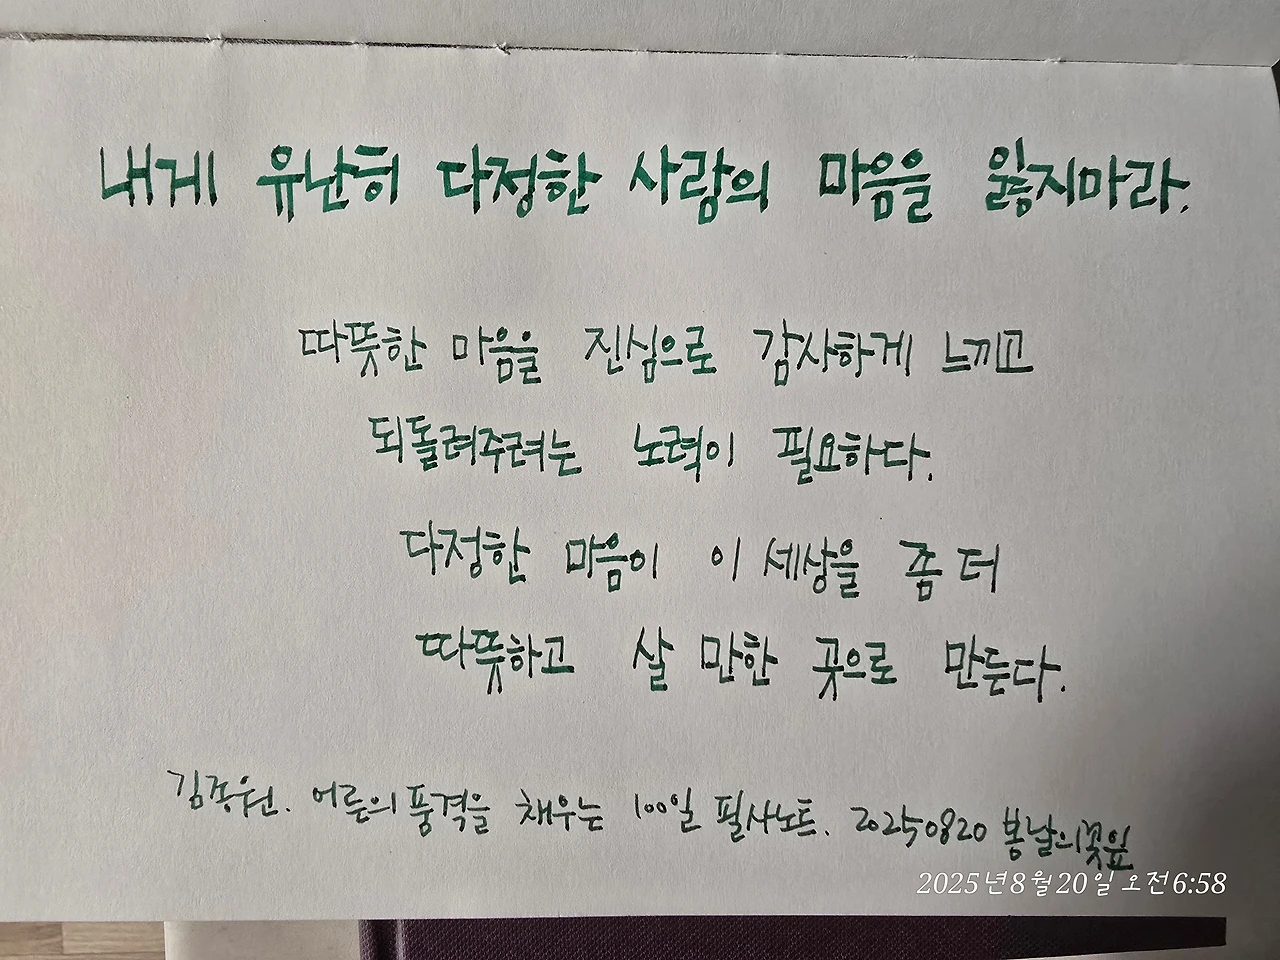 내게 유난히 다정한 사람의 마음을 잃지마라.
따뜻한 마음을 진심으로 감사하게 느끼고
되돌려주려는 노력이 필요하다.
다정한 마음이 이 세상을 좀 더
따뜻하고 살 만한 곳으로 만든다.
김종원. 어른의 품격을 채우는 100일 필사노트. 20250820 봄날의꽃잎
2025년 8월 20일 오전 6:58